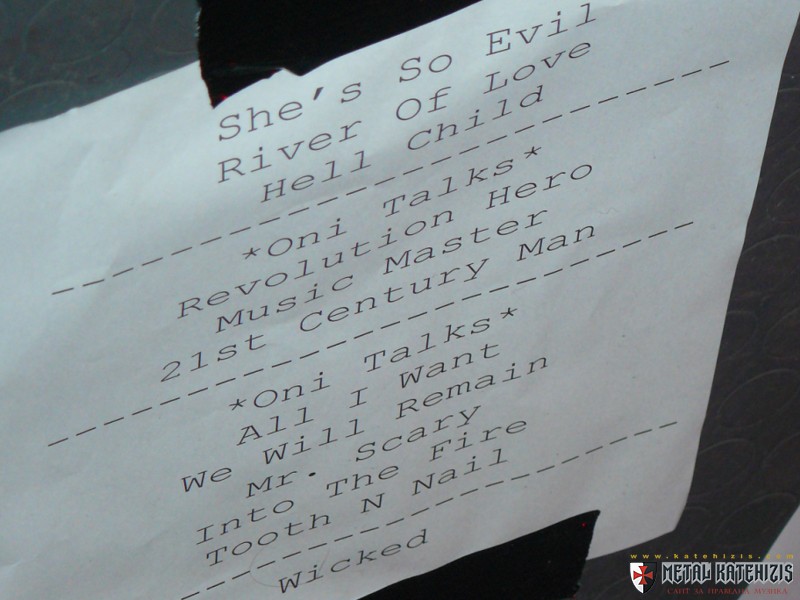 She's So Evil
River Of Love
Hell Child
*Oni Talks*
Revolution Hero
Music Master
21st Century Man
*Oni Talks*
All I Want
We Will Remain
Mr. Scary
Into The Fire
Tooth N Nail
Wicked
www.katehizis.com
METAL KATEHIZIS
САЙТ ЗА ПРАВДИВА МУЗИКА